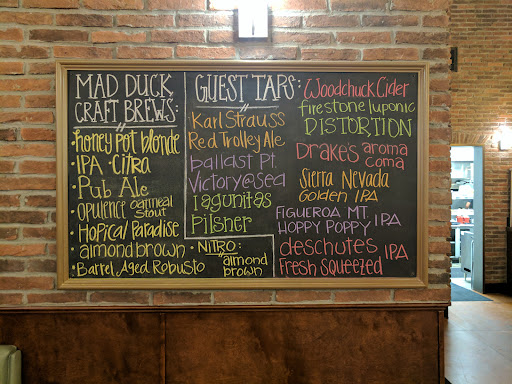 MAD DUCK
CRAFT BREWS:
• honey Pot blonde
• IPA • Citra
• Pub Ale
• opulence oatmeal
stout
• Hopical Paradise
• almond brown
• Barrel Aged Robusto
• NITRO:
almond
brown
GUEST TAPS:
Karl Strauss
Red Trolley Ale
ballast Pt.
Victory@Sea
lagunitas
Pilsner
Woodchuck Cider
firestone luponic
DISTORTION
DRAKE'S aroma
coma
Sierra Nevada
Golden IPA
FIGUEROA MT.
HOPPY POPPY IPA
deschutes
Fresh Squeezed IPA